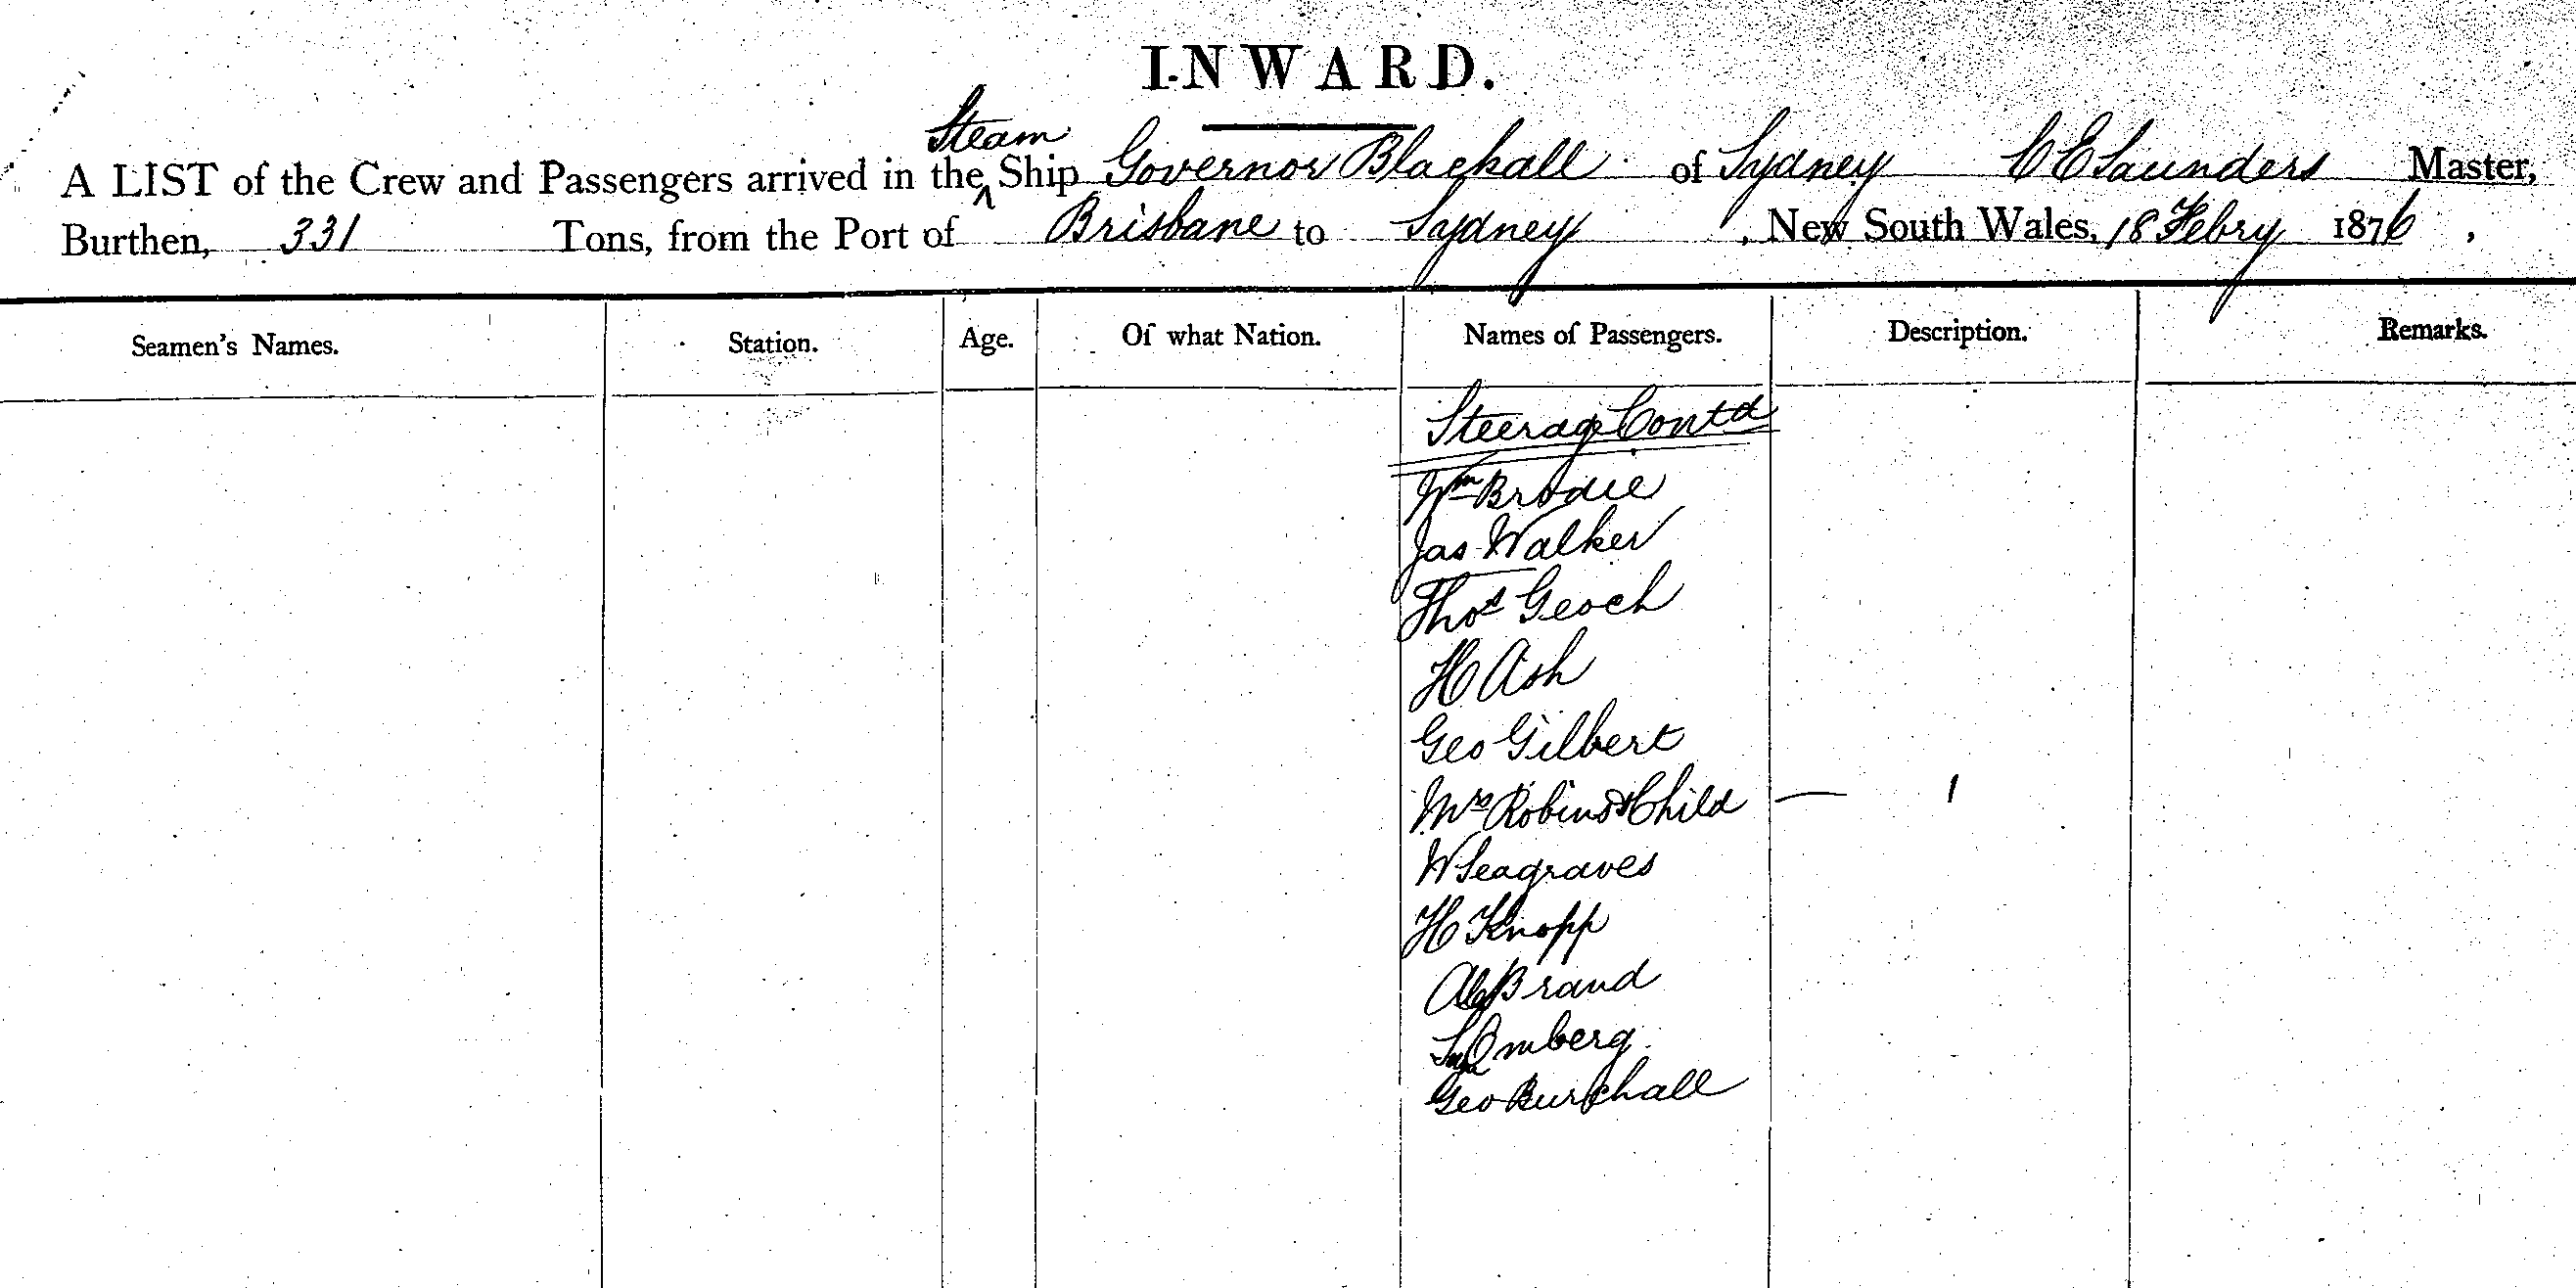 INWARD.
Steam
A LIST of the Crew and Passengers arrived in the ^ Ship Governor Blackall of Sydney C E Saunders Master,
Burthen, 331 Tons, from the Port of Brisbane to Sydney, New South Wales, 18 Febry 1876,
Seamen's Names. Station. Age. Of what Nation. Names of Passengers. Description. Remarks.
Steerage Contd
Wm Brodie
Jas Walker
Thos Geoch
H Ash
Geo Gilbert
Mrs Robins & Child — 1
W Seagraves
H Knopp
Brand
Omberg
Geo Burchall